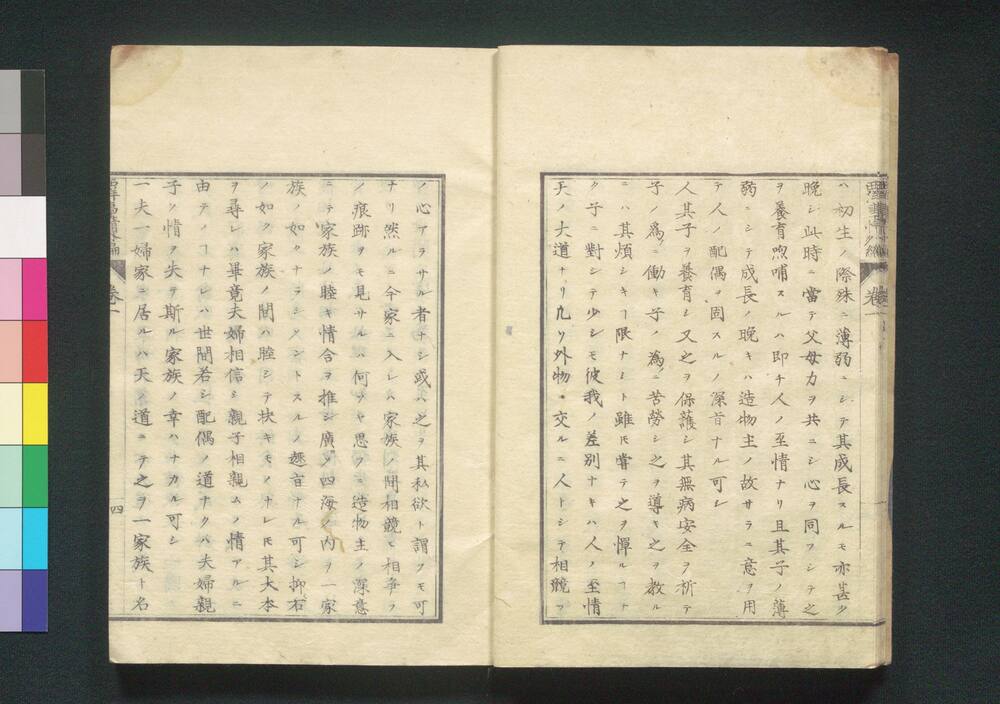 ハ初生ノ際殊ニ薄弱ニシテ其成長スルモ亦甚タ
晩シ此時ニ當テ父母力ヲ共ニシ心ヲ同フシテ之
ヲ養育喣哺スルハ即チ人ノ至情ナリ且其子ノ薄
弱ニシテ成長ノ晩キハ造物主ノ故サラニ意ヲ用
テ人ノ配偶ヲ固スルノ深旨ナル可シ
人其子ヲ養育シ又之ヲ保護シ其無病安全ヲ祈テ
子ノ爲ニ働キ子ノ爲ニ苦勞シ之ヲ導キ之ヲ教ル
ニハ其煩シキヿ限ナシト雖𪜈嘗テ之ヲ憚ルヿナ
ク子ニ對シテ少シモ彼我ノ差別ナキハ人ノ至情
天ノ大道ナリ凢ソ外物ニ交ルニ人トシテ相競フ
ノ心アラサル者ナシ或ハ之ヲ其私欲ト謂フモ可
ナリ然ルニ今家ニ入レハ家族ノ間相競ヒ相爭フ
ノ痕跡ヲモ見サルハ何ソヤ思フニ造物主ノ深意
ニテ家族ノ睦キ情合ヲ推シ廣メ四海ノ内ヲ一家
族ノ如クナラシメントスルノ趣旨ナル可シ抑右
ノ如ク家族ノ間ハ睦シテ快キモノナレ𪜈其大本
ヲ尋レハ畢竟夫婦相信シ親子相親ムノ情アルニ
由テノヿナレハ世間若シ配偶ノ道ナクハ夫婦親
子ノ情ヲ失テ斯ル家族ノ幸ハナカル可シ
一夫一婦家ニ居ルハ天ノ道ニテ之ヲ一家族ト名
卷一
四